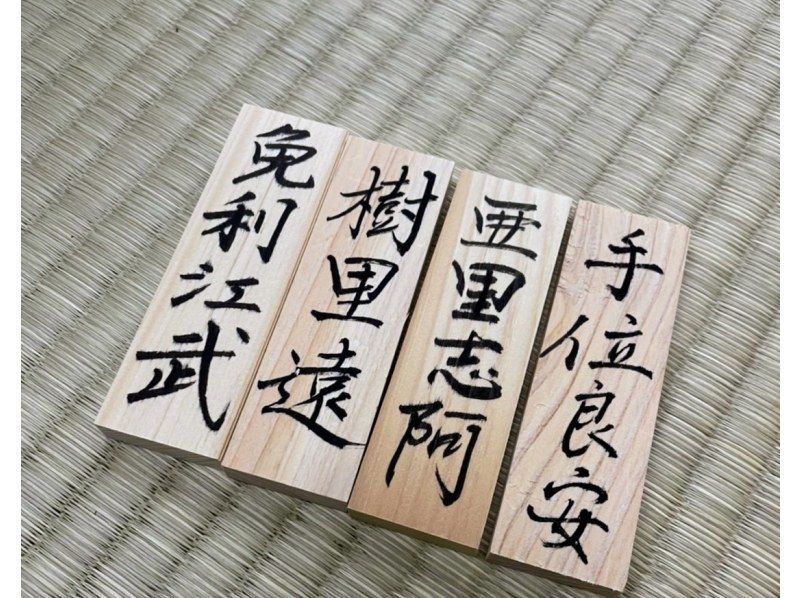 免利江武
樹里遠
亜里志阿
手位良安